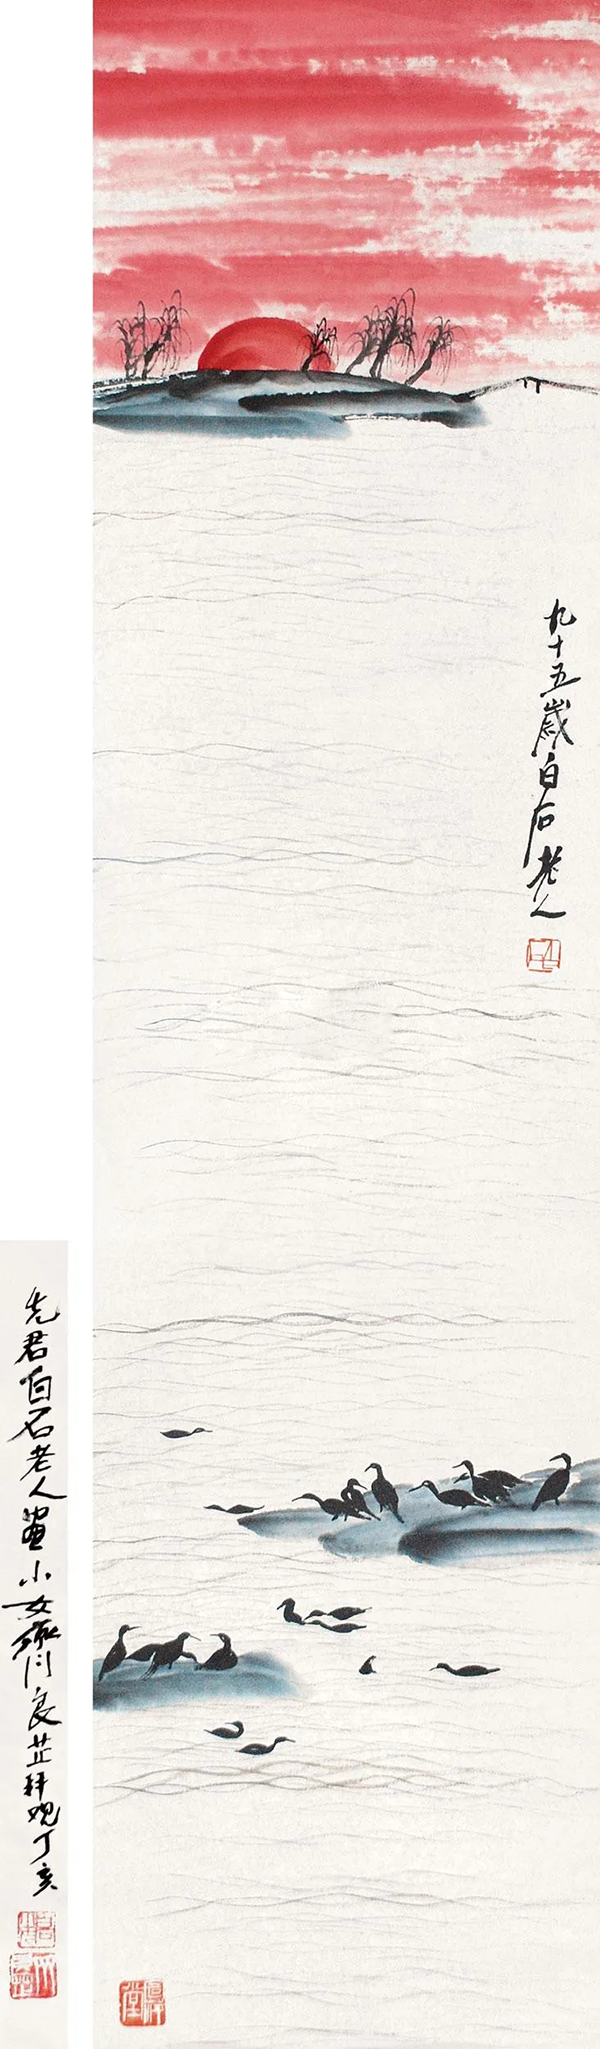 九十五歲白石老人
先君白石老人畫小女齊良芷拜觀丁亥